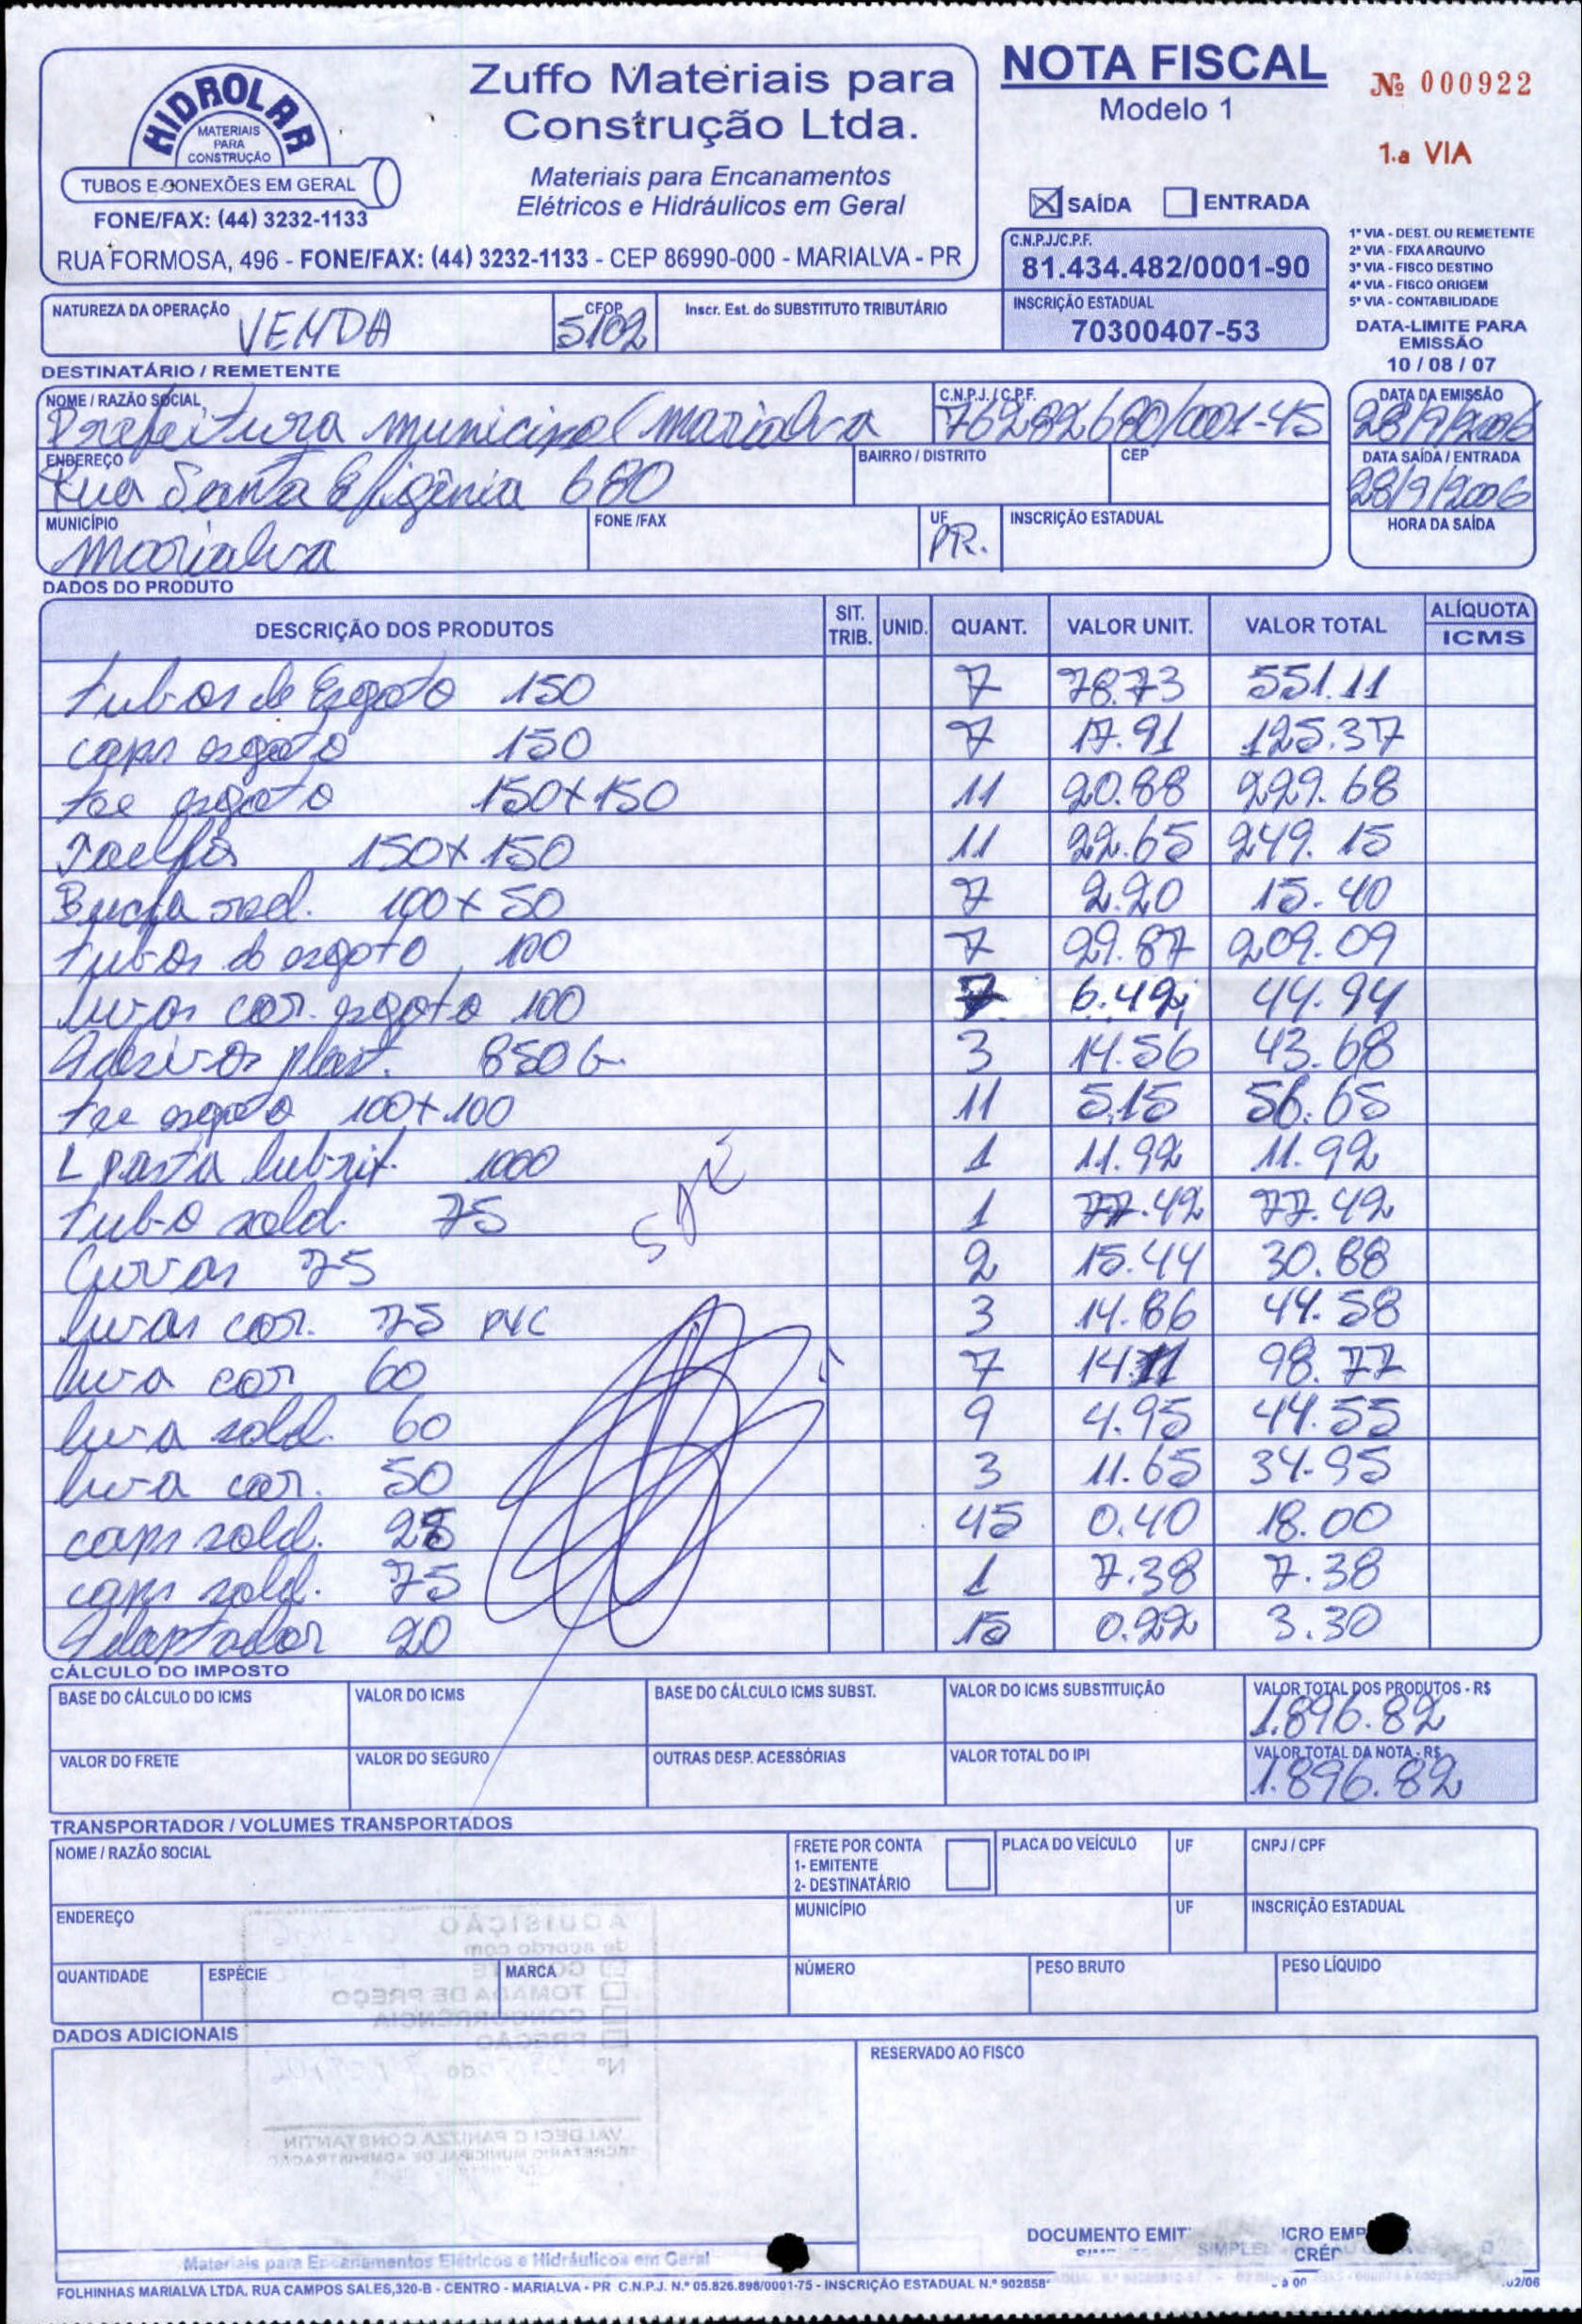 HIDROLAR
MATERIAIS
PARA
CONSTRUÇÃO
TUBOS E CONEXÕES EM GERAL
FONE/FAX: (44) 3232-1133
Zuffo Materiais para
Construção Ltda.
Materiais para Encanamentos
Elétricos e Hidráulicos em Geral
RUA FORMOSA, 496 - FONE/FAX: (44) 3232-1133 - CEP 86990-000 - MARIALVA - PR
NOTA FISCAL
Modelo 1
№ 000922
1.a VIA
SAÍDA ENTRADA
C.N.P.J./C.P.F.
81.434.482/0001-90
INSCRIÇÃO ESTADUAL
70300407-53
1ª VIA - DEST. OU REMETENTE
2ª VIA - FIXA ARQUIVO
3ª VIA - FISCO DESTINO
4ª VIA - FISCO ORIGEM
5ª VIA - CONTABILIDADE
DATA-LIMITE PARA
EMISSÃO
10 / 08 / 07
NATUREZA DA OPERAÇÃO VENDA
CFOP 5102
Inscr. Est. do SUBSTITUTO TRIBUTÁRIO
DESTINATÁRIO / REMETENTE
NOME / RAZÃO SOCIAL
Prefeitura municipal marialva
C.N.P.J. / C.P.F.
76282680/001-45
DATA DA EMISSÃO
28/9/2006
ENDEREÇO
Rua Santa Efigênia 680
BAIRRO / DISTRITO
CEP
DATA SAÍDA / ENTRADA
28/9/2006
MUNICÍPIO
marialva
FONE /FAX
UF
PR.
INSCRIÇÃO ESTADUAL
HORA DA SAÍDA
DADOS DO PRODUTO
DESCRIÇÃO DOS PRODUTOS SIT. TRIB. UNID. QUANT. VALOR UNIT. VALOR TOTAL ALÍQUOTA ICMS
tubos de Esgoto 150 7 78.73 551.11
caps esgoto 150 7 17.91 125.37
tee esgoto 150x150 11 20.88 229.68
150x150 11 22.65 249.15
Bucha red. 100x50 7 2.20 15.40
tubos de esgoto 100 7 29.87 209.09
luvas cor. esgoto 100 7 6.42 44.94
Adesivos plast. 850G 3 14.56 43.68
tee esgoto 100x100 11 5.15 56.65
L pasta lubrif. 1000 1 11.92 11.92
tubo sold. 75 1 77.42 77.42
Curvas 75 2 15.44 30.88
luvas cor. 75 PVC 3 14.86 44.58
luva cor 60 7 14.11 98.77
luva sold. 60 9 4.95 44.55
luva cor. 50 3 11.65 34.95
caps sold. 25 45 0.40 18.00
caps sold. 75 1 7.38 7.38
Adaptador 20 15 0.22 3.30
CÁLCULO DO IMPOSTO
BASE DO CÁLCULO DO ICMS
VALOR DO ICMS
BASE DO CÁLCULO ICMS SUBST.
VALOR DO ICMS SUBSTITUIÇÃO
VALOR TOTAL DOS PRODUTOS - R$
1.896.82
VALOR DO FRETE
VALOR DO SEGURO
OUTRAS DESP. ACESSÓRIAS
VALOR TOTAL DO IPI
VALOR TOTAL DA NOTA - R$
1.896.82
TRANSPORTADOR / VOLUMES TRANSPORTADOS
NOME / RAZÃO SOCIAL
FRETE POR CONTA
1- EMITENTE
2- DESTINATÁRIO
PLACA DO VEÍCULO
UF
CNPJ / CPF
ENDEREÇO
MUNICÍPIO
UF
INSCRIÇÃO ESTADUAL
QUANTIDADE
ESPÉCIE
MARCA
NÚMERO
PESO BRUTO
PESO LÍQUIDO
DADOS ADICIONAIS
RESERVADO AO FISCO
AQUISIÇÃO
de acordo com
TOMADA DE PREÇO
CONCORRÊNCIA
PREGÃO
Nº
DOCUMENTO EMIT
CRO EMP
Materiais para Encanamentos Elétricos e Hidráulicos em Geral
FOLHINHAS MARIALVA LTDA. RUA CAMPOS SALES,320-B - CENTRO - MARIALVA - PR C.N.P.J. N.º 05.826.898/0001-75 - INSCRIÇÃO ESTADUAL N.º 902858